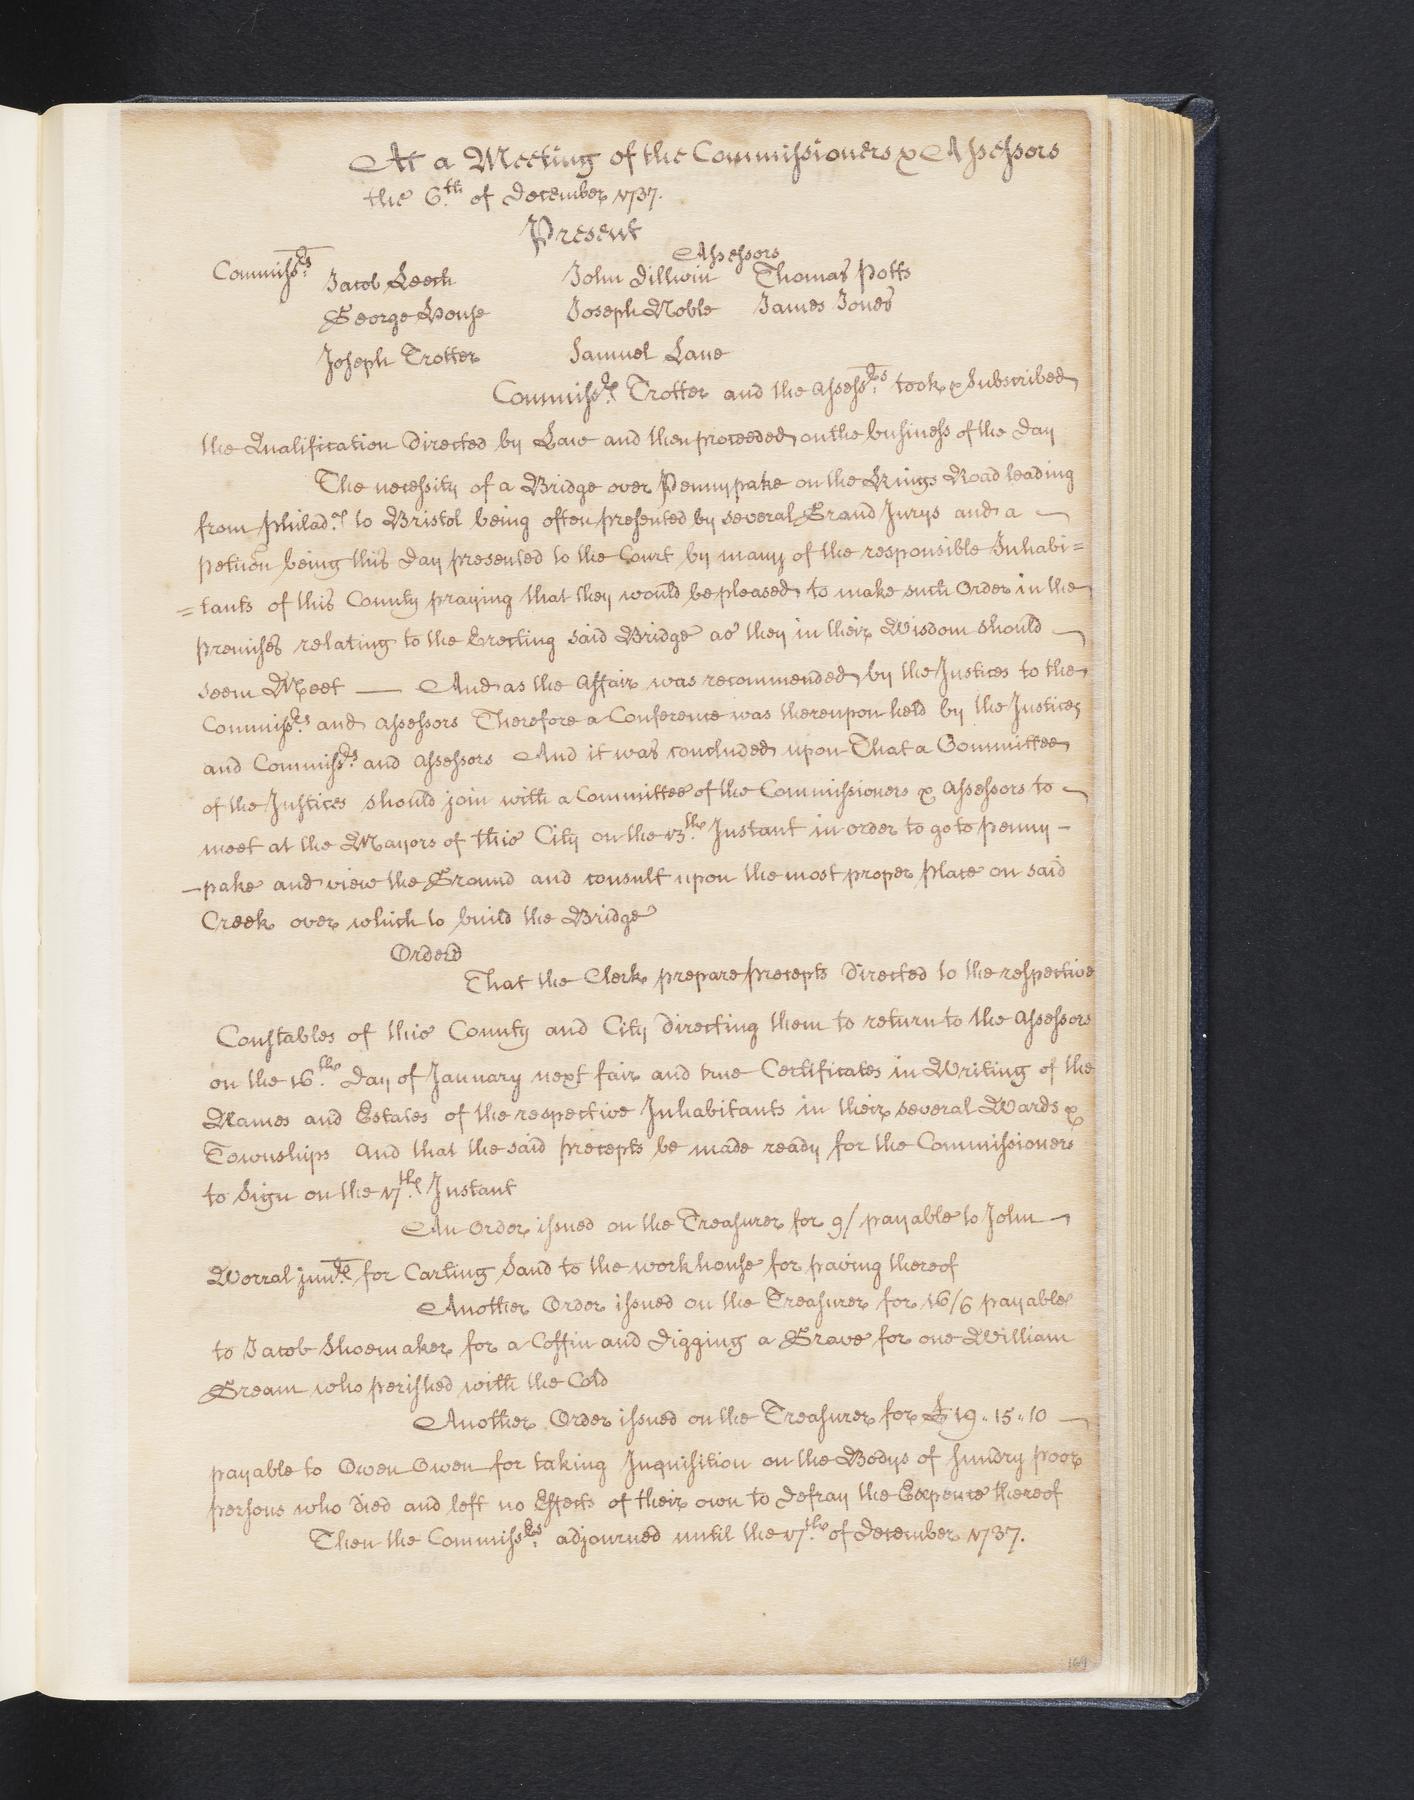 At a Meeting of the Commissioners & Assessors
the 6.th of December 1737.
Present
Assessors
Commiss.rs Jacob Leech John Dillwin Thomas Potts
George House Joseph Noble James Jones
Joseph Trotter Samuel Lane
Commiss.r Trotter and the Assess.rs took & Subscribed
the Qualification Directed by Law and then proceeded on the business of the Day
The necessity of a Bridge over Pennypake on the Kings Road leading
from Philad.a to Bristol being often presented by several Grand Jurys and a
petition being this Day presented to the Court by many of the responsible Inhabi=
=tants of this County praying that they would be pleased to make such Order in the
premises relating to the Erecting said Bridge as they in their Wisdom should
seem Meet — And as the Affair was recommended by the Justices to the
Commiss.rs and Assessors Therefore a Conference was thereupon held by the Justices
and Commiss.rs and Assessors And it was concluded upon That a Committee
of the Justices should join with a Committee of the Commissioners & Assessors to
meet at the Mayors of this City on the 13.th Instant in order to go to Penny-
-pake and view the Ground and consult upon the most proper Place on said
Creek over which to build the Bridge
Orderd
That the Clerk prepare precepts Directed to the respective
Constables of this County and City directing them to return to the Assessors
on the 16.th Day of January next fair and true Certificates in Writing of the
Names and Estates of the respective Inhabitants in their several Wards &
Townships And that the said precepts be made ready for the Commissioners
to Sign on the 17.th Instant
An Order issued on the Treasurer for 9/ payable to John
Worral jun.r for Carting Sand to the workhouse for paving thereof
Another Order issued on the Treasurer for 16/6 payable
to Jacob Shoemaker for a Coffin and Digging a Grave for one William
Gream who perished with the Cold
Another Order issued on the Treasurer for £19..15..10
payable to Owen Owen for taking Inquisition on the Bodys of sundry poor
persons who died and left no Effects of their own to Defray the Expence thereof
Then the Commiss.rs adjourned until the 17.th of December 1737.
169